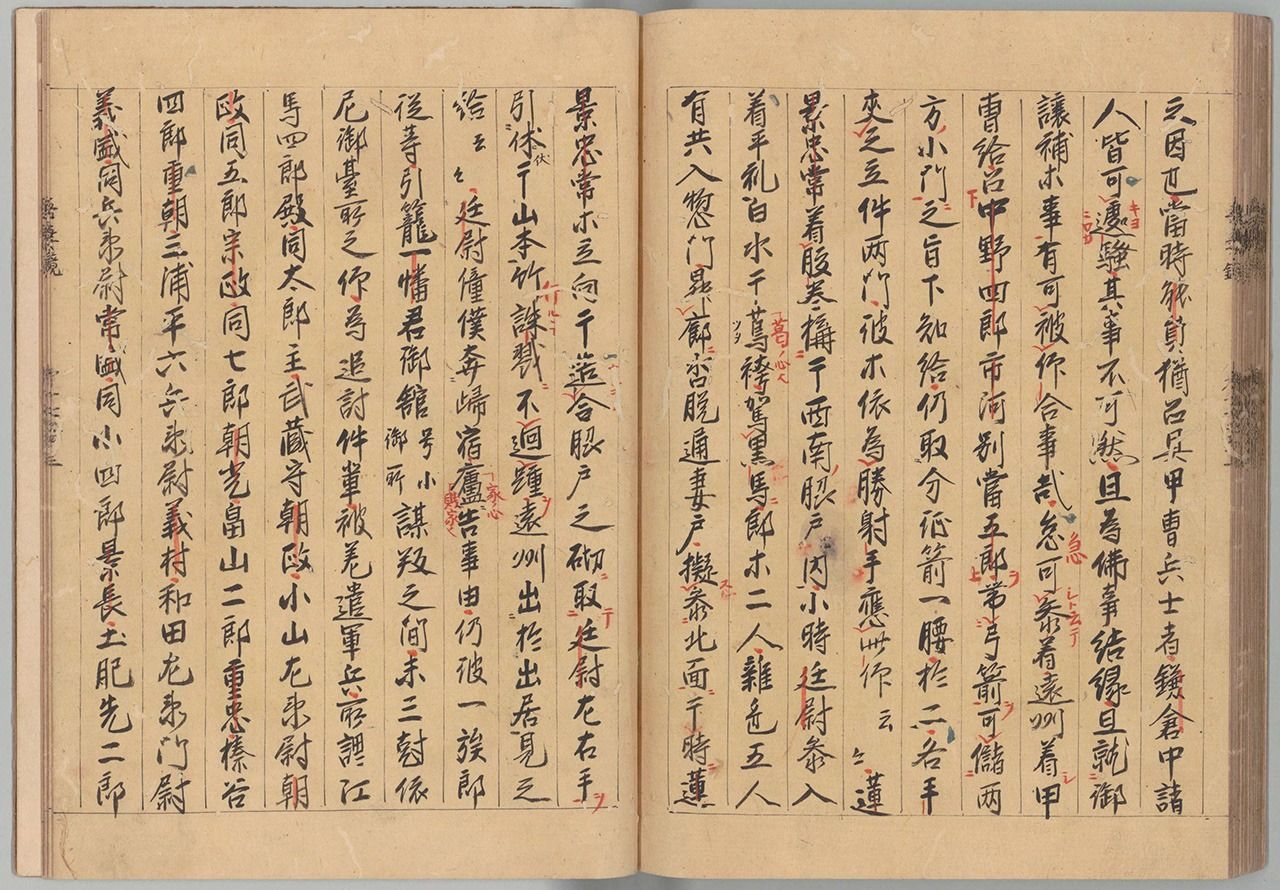 之因也當時能員猶召具甲曹兵士者鎌倉中諸
人皆可遽騒其事不可然且為佛事結縁且就御
讓補ホ事有可被仰合事哉忽可參着遠州着甲
曹給召中野四郎市河別當五郎帯弓箭可儲両
方小門之旨下知給仍取分征箭一腰於二各手
夾之立件両門彼ホ依為勝射手應此仰云々蓮
景忠常着腹巻構于西南脇戸内小時廷尉參入
着平礼白水干葛袴駕黒馬郎ホ二人雑色五人
有共入惣門昇廊沓脱通妻戸擬參北面于時蓮
景忠常ホ立向于造合脇戸之砌取廷尉左右手
引伏于山本竹誅戮不廻踵遠州出於出居見之
給云々廷尉僮僕奔歸宿廬告事由仍彼一族郎
従等引籠一幡君御館号小御所謀叛之間未三尅依
尼御臺所之仰為追討件輩被差遣軍兵所謂江
馬四郎殿同太郎主武蔵守朝政小山左衛尉朝
政同五郎宗政同七郎朝光畠山二郎重忠榛谷
四郎重朝三浦平六兵衛尉義村和田左衛門尉
義盛同兵衛尉常盛同小四郎景長土肥先二郎